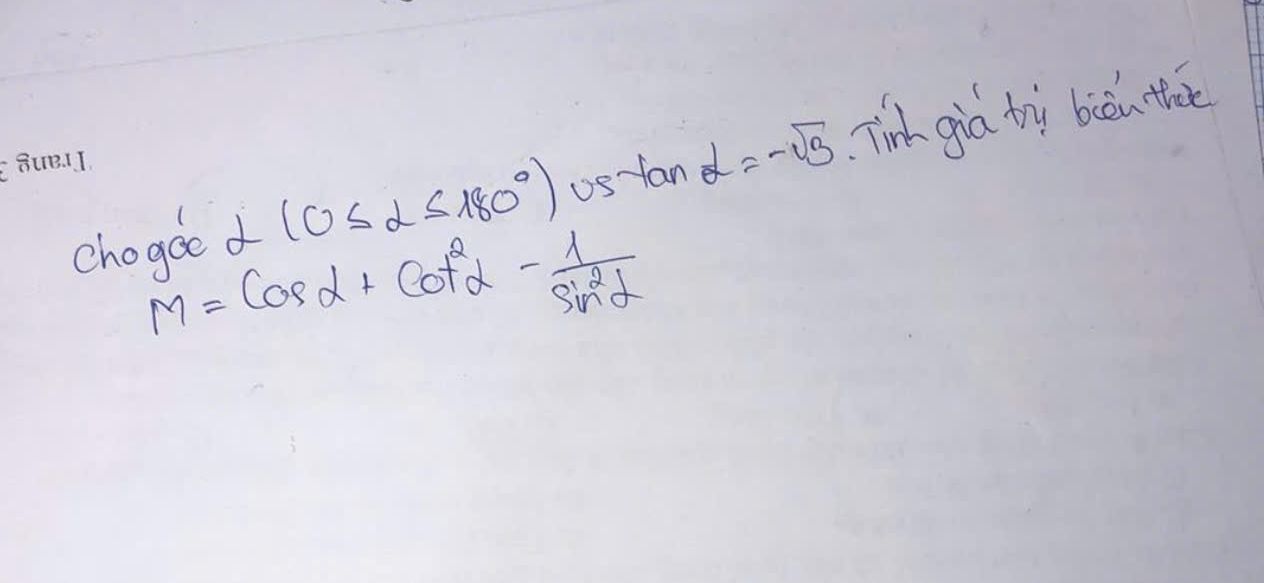 Trang
Cho góc α (0 ≤ α ≤ 180°) vs tan α = -√3. Tính giá trị biểu thức
M = Cos α + Cot²α - 1/sin²α